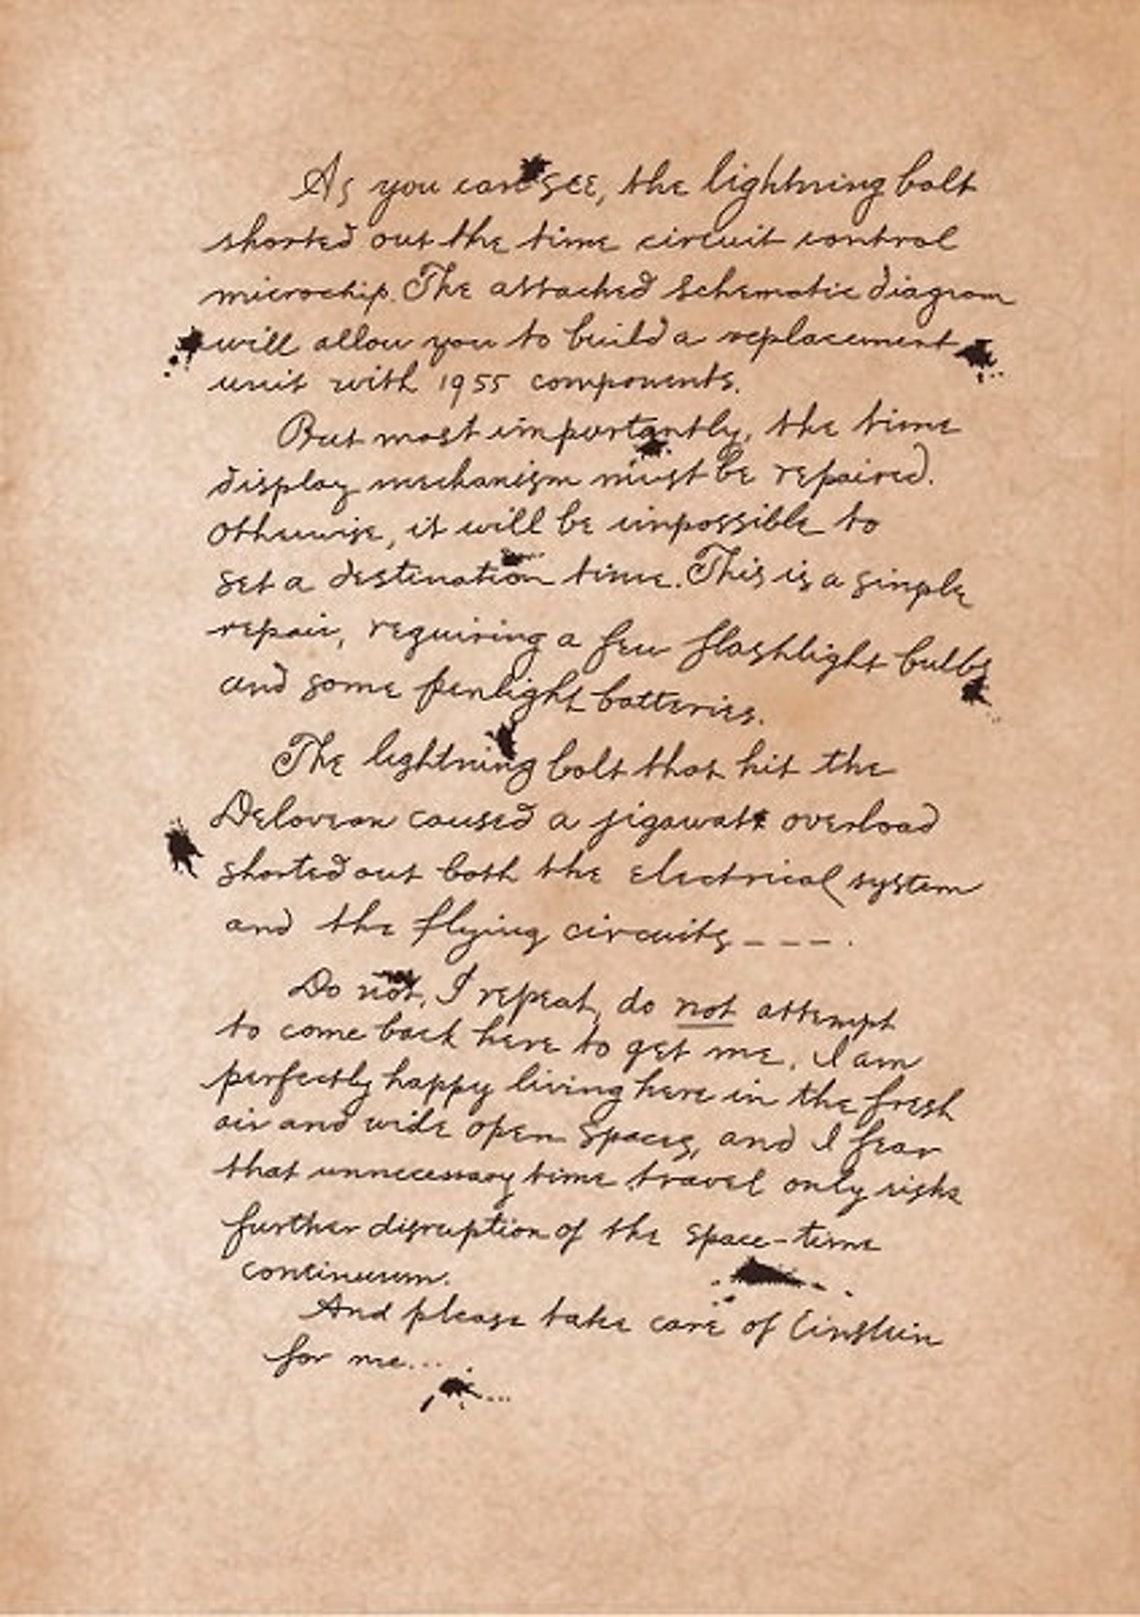 As you can see, the lightning bolt
shorted out the time circuit control
microchip. The attached schematic diagram
will allow you to build a replacement
unit with 1955 components.
But most importantly, the time
display mechanism must be repaired.
Otherwise, it will be impossible to
set a destination time. This is a simple
repair, requiring a few flashlight bulbs
and some penlight batteries.
The lightning bolt that hit the
Delorean caused a jigawatt overload
shorted out both the electrical system
and the flying circuits - - - .
Do not, I repeat, do not attempt
to come back here to get me. I am
perfectly happy living here in the fresh
air and wide open spaces, and I fear
that unnecessary time travel only risks
further disruption of the space-time
continuum.
And please take care of Einstein
for me...